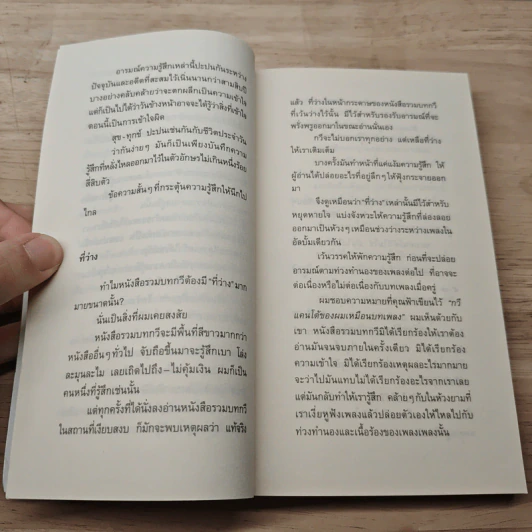 อารมณ์ความรู้สึกเหล่านี้ปะปนกันระหว่าง
ปัจจุบันและอดีตที่สะสมไว้เนิ่นนานกว่าสามสิบปี
บางอย่างคลับคล้ายว่าจะตกผลึกเป็นความเข้าใจ
แต่ก็เป็นไปได้ว่าวันข้างหน้าอาจจะได้รู้ว่าสิ่งที่เข้าใจ
ตอนนี้เป็นการเข้าใจผิด
สุข-ทุกข์ ปะปนเช่นกันกับชีวิตประจำวัน
ว่ากันง่ายๆ มันก็เป็นเพียงบันทึกความ
รู้สึกที่หลั่งไหลออกมาไว้ในตัวอักษรไม่เกินหนึ่งร้อย
สี่สิบตัว
ข้อความสั้นๆ ที่กระตุ้นความรู้สึกให้นึกไป
ไกล
ที่ว่าง
ทำไมหนังสือรวมบทกวีต้องมี "ที่ว่าง" มาก
มายขนาดนั้น?
นั่นเป็นสิ่งที่ผมเคยสงสัย
หนังสือรวมบทกวีจะมีพื้นที่สีขาวมากกว่า
หนังสืออื่นๆ ทั่วไป จับถือขึ้นมาจะรู้สึกเบา โล่ง
ละมุนละไม เลยเถิดไปถึง–ไม่คุ้มเงิน ผมก็เป็น
คนหนึ่งที่รู้สึกเช่นนั้น
แต่ทุกครั้งที่ได้นั่งลงอ่านหนังสือรวมบทกวี
ในสถานที่เงียบสงบ ก็มักจะพบเหตุผลว่า แท้จริง
แล้ว ที่ว่างในหน้ากระดาษของหนังสือรวมบทกวี
ที่เว้นว่างไว้นั้น มีไว้สำหรับรองรับอารมณ์ที่จะ
พรั่งพรูออกมาในขณะอ่านนั่นเอง
กวีจะไม่บอกเราทุกอย่าง แต่เหลือที่ว่าง
ให้เราเติมเต็ม
บางครั้งมันทำหน้าที่แค่แง้มความรู้สึก ให้
ผู้อ่านได้ปล่อยอะไรที่อยู่ลึกๆ ให้ฟุ้งกระจายออก
มา
จึงดูเหมือนว่า "ที่ว่าง" เหล่านั้นมีไว้สำหรับ
หยุดหายใจ แบ่งจังหวะให้ความรู้สึกที่ล่องลอย
ออกมาเป็นห้วงๆ เหมือนช่วงว่างระหว่างเพลงใน
อัลบั้มเดียวกัน
เว้นวรรคให้พักความรู้สึก ก่อนที่จะปล่อย
อารมณ์ตามท่วงทำนองของเพลงต่อไป ที่อาจจะ
ต่อเนื่องหรือไม่ต่อเนื่องกับบทเพลงเมื่อครู่
ผมชอบความหมายที่คุณฟ้าเขียนไว้ "กวี
แคนโต้ของผมเหมือนบทเพลง" ผมเห็นด้วยกับ
เขา หนังสือรวมบทกวีมิได้เรียกร้องให้เราต้อง
อ่านมันจนจบภายในครั้งเดียว มิได้เรียกร้อง
ความเข้าใจ มิได้เรียกร้องเหตุผลอะไรมากมาย
จะว่าไปมันแทบไม่ได้เรียกร้องอะไรจากเราเลย
แต่มันกลับทำให้เรารู้สึก คล้ายๆ กับในห้วงยามที่
เราเงี่ยหูฟังเพลงแล้วปล่อยตัวเองให้ไหลไปกับ
ท่วงทำนองและเนื้อร้องของเพลงเพลงนั้น